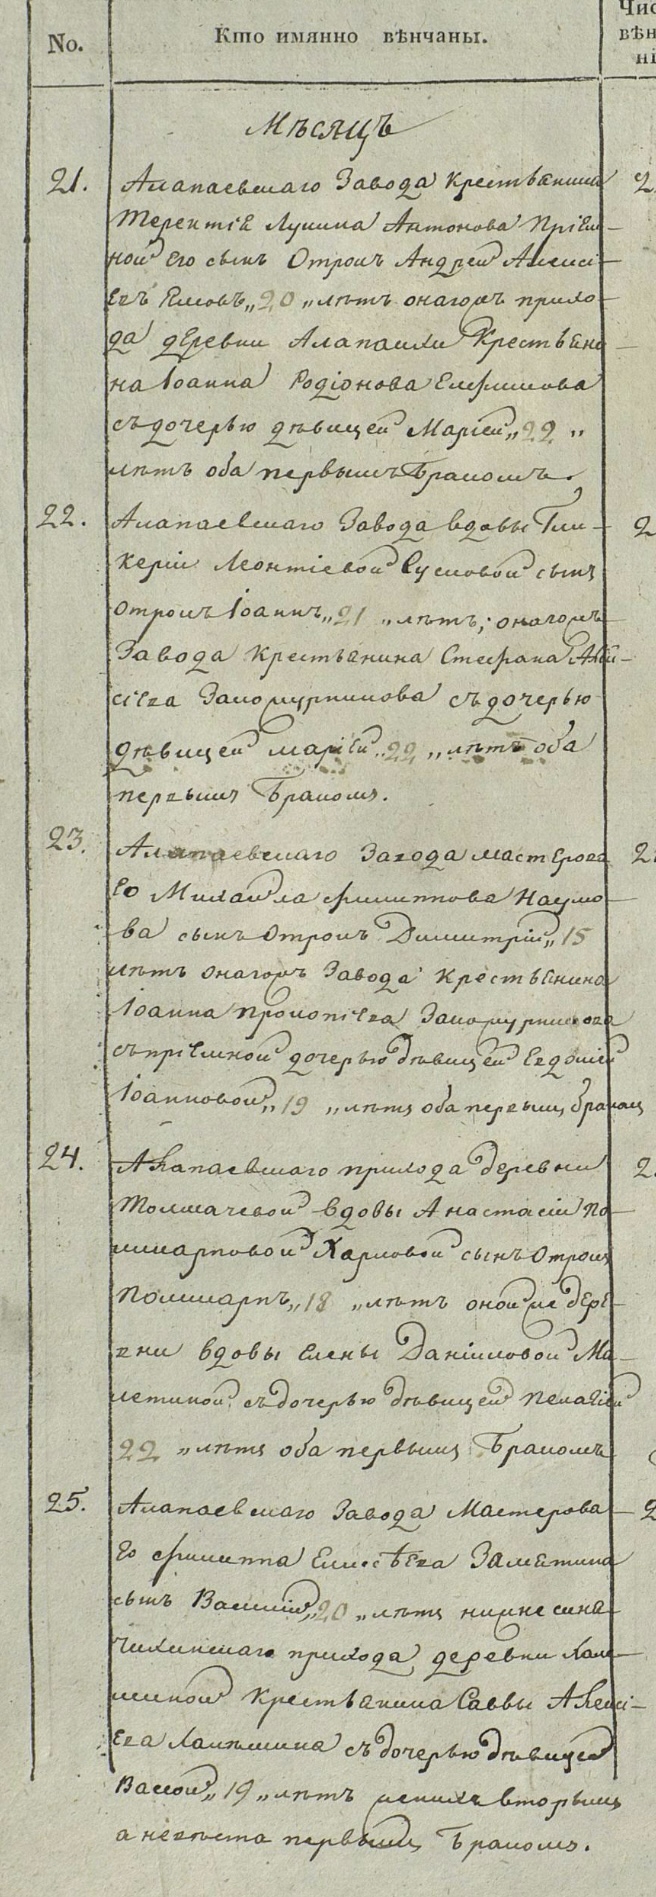 No.
Кто имянно вѣнчаны.
Чис
вѣн
ні
Мѣсяцъ
21. Алапаевскаго Завода крестьянина
Терентіе Лукина Антонова пріем-
ной его сынъ Отрокъ Андрей Алексі-
евъ „20 „лѣтъ онагожъ прихо-
да деревни Алапаихи Крестьяни-
на Іоанна Родіонова Ефимова
съ дочерью дѣвицей Маріей „22 „
лѣтъ оба первымъ Бракомъ.
22. Алапаевскаго Завода вдовы Гли-
керіи Леонтіевой Сусловой сынъ
отрокъ Іоаннъ „21 „лѣтъ; онагожъ
Завода крестьянина Стефана Алек-
сіева Закожурникова съ дочерью
дѣвицей маріей „22 „лѣтъ оба
первымъ Бракомъ.
23. Алапаевскаго Завода мастерова
го Михаила филиппова Наумо-
ва сынъ Отрокъ Димитрій „15
лѣтъ онагожъ Завода крестьянина
Іоанна прокопіева Закожурникова
съ пріемной дочерью дѣвицей Евдокіей
Іоанновой „19 „лѣтъ оба первымъ бракомъ
24. Алапаевскаго прихода деревни
Толмачевой вдовы Анастасіи По-
ликарповой Харловой сынъ отрокъ
Поликарпъ „18 „лѣтъ онойже дере-
вни вдовы Елены Даниловой Ма-
съ дочерью дѣвицей Пелагіей
22 „лѣтъ оба первымъ Бракомъ
25. Алапаевскаго Завода Мастерова-
го филиппа Елисѣева Замятина
сынъ Василій „20 „лѣтъ нижне сина-
чихинскаго прихода деревни
крестьянина Саввы Алексі-
ева съ дочерью дѣвицей
Вассой „19 „лѣтъ женихъ вторымъ
а невѣста первымъ Бракомъ.